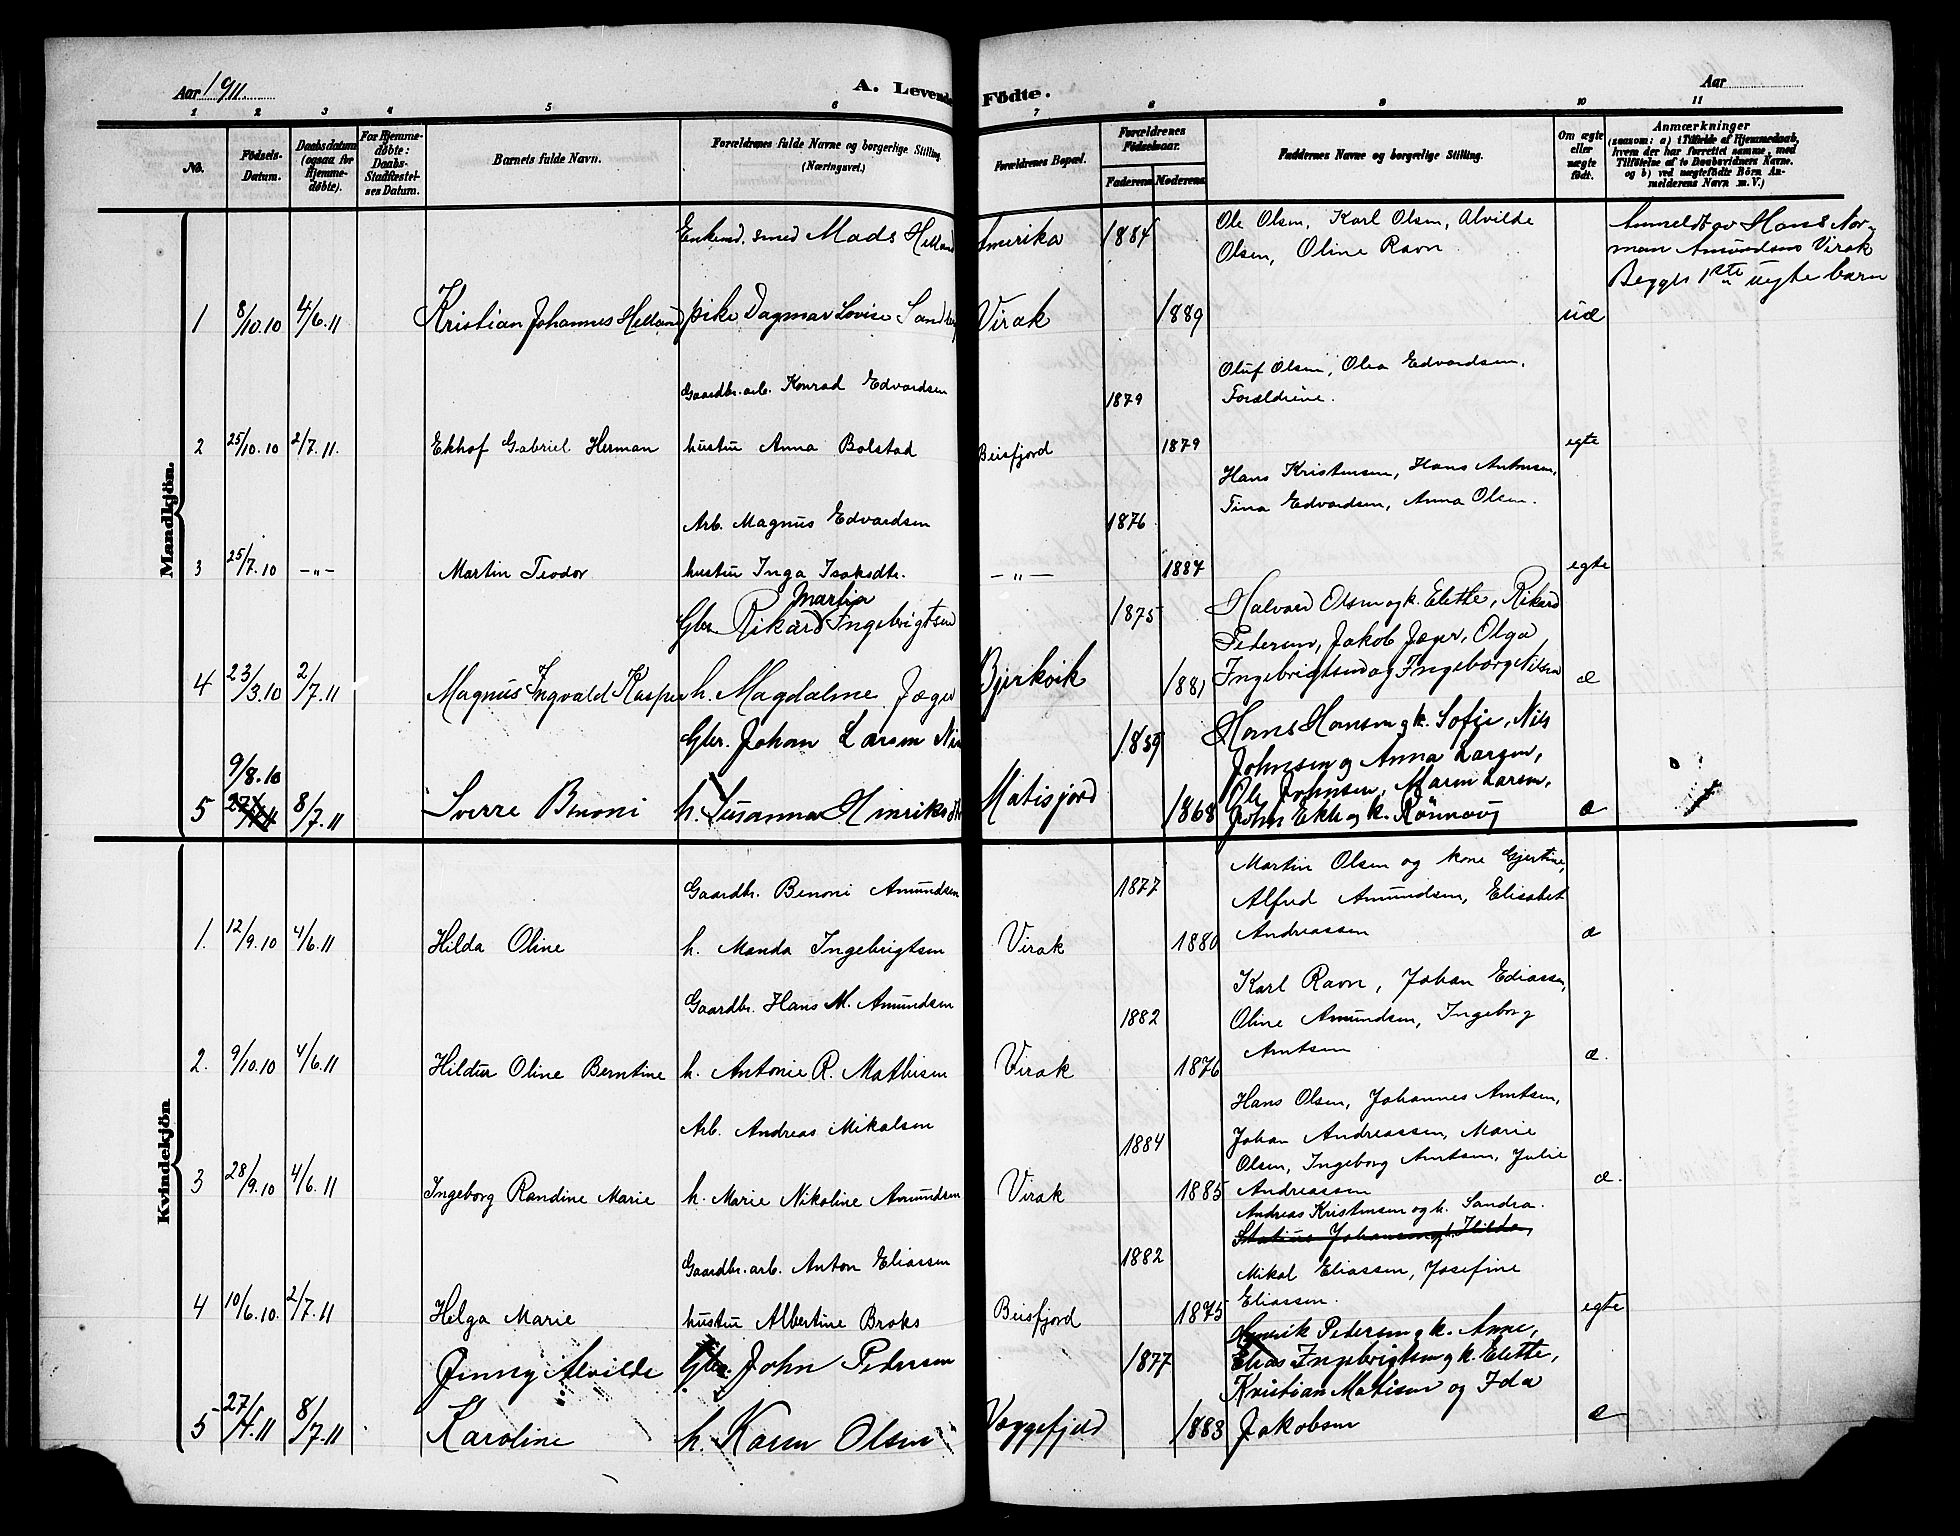 Aar 1911.
A. Levende Födte.
Aar
1 2 3 4 5 6 7 8 9 10 11
No.
Födsels-Datum.
Daabsdatum (ogsaa for Hjemme-döbte).
For Hjemme-döbte: Daabs-Stadfæstel-ses Datum.
Barnets fulde Navn.
Forældrenes fulde Navne og borgerlige Stilling. (Næringsvei.)
Forældrenes Bopæl.
Forældrenes Födselsaar.
Faderens
Moderens
Faddernes Navne og borgerlige Stilling.
Om ægte eller uægte födt.
Anmærkninger
(saasom: a) i Tilfælde af Hjemmedaab,
hvem der har forrettet samme, med
Tilföielse af to Daabsvidners Navne.
og b) ved uægtefödte Börn An-
melderens Navn m. V.)
Mandkjön.
Enkemd. smed Mads Helland Amerika 1884 Ole Olsen, Karl Olsen, Alvilde
Olsen, Oline Ravn
Anmeldt av Hans Nor-
man Amundsens Virak
Begges 1ste uegte barn
1 8/10.10 4/6.11 Kristian Johannes Helland pike Dagmar Lovise Sandberg Virak 1889 uæ
Gaardbr.arb. Konrad Edvardsen 1879 Oluf Olsen, Olea Edvardsen,
Forældrene.
2 25/10.10 2/7.11. Ekhof Gabriel Herman hustru Anna Bolstad Beisfjord 1879 egte
Arb. Magnus Edvardsen 1876 Hans Kristensen, Hans Antonsen,
Tina Edvardsen, Anna Olsen.
3 25/7.10 -"- Martin Teodor hustru Inga Isaksdtr. -"- 1884 egte
Gbr. Rikard Martin Ingebrigtsen 1875 Halvard Olsen og k. Elette, Rikard
Pedersen, Jakob Jæger, Olga
4 23/3.10 2/7.11 Magnus Ingvald Kasper h. Magdalene Jæger Bjerkvik 1881 Ingebrigtsen og Ingeborg Nilsen æ
Gbr. Johan Larsen 1859 Hans Hansen og k. Sofie, Nils
Johnsen og Anna Larsen,
Ole Johnsen, Maren Larsen,
9/8.10
5 8/7.11 Sverre Benoni h. Susanna Hinriksdtr Matisjord 1868 John Ekle og k. Rönnaug æ
Kvindekjön.
Gaardbr. Benoni Amundsen 1877 Martin Olsen og kone Gjertine,
Alfred Amundsen, Elisabet
1. 12/9.10 4/6.11 Hilda Oline h. Manda Ingebrigtsen Virak 1880 Andreassen æ
Gaardbr. Hans M. Amundsen 1882 Karl Ravn, Johan Ediassen,
Oline Amundsen, Ingeborg
2. 9/10.10 4/6.11 Hildur Oline Berntine h. Antonie R. Mathisen Virak 1876 Arntsen æ.
Arb. Andreas Mikalsen 1884 Hans Olsen, Johannes Arntsen,
Johan Andreassen, Marie
Olsen, Ingeborg Arntsen, Julie
3 28/9.10 4/6.11 Ingeborg Randine Marie h. Marie Nikoline Amundsen Virak 1885 Andreassen æ.
Gaardbr.arb. Anton Eliassen 1882 Andreas Kristensen og h. Sandra.
Mikal Eliassen, Josefine
4 10/6.10. 2/7.11 Helga Marie hustru Albertine Broks Beisfjord 1875 Eliassen. egte
Jinny Alvilde Gbr. John Pedersen 1877 Henrik Pedersen og k. Anne,
Elias Ingebrigtsen og k. Elette,
Kristian Matisen og Ida
5 27/4.11 8/7.11 Karoline h. Karen Olsen Væggefjeld 1883 Jakobsen æ